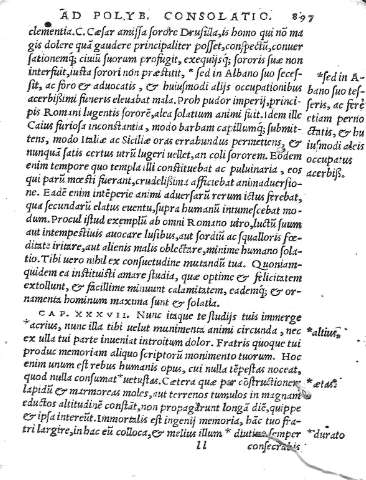 AD POLYB. CONSOLATIO. 897
clementia. C. Cæsar amissa sorore Drusilla, is homo qui nō ma
gis dolere quā gaudere principaliter posset, conspectū, conuer
sationemq́; ciuiū suorum profugit, exequijsq́; sororis suæ non
interfuit, iusta sorori non præstitit, *sed in Albano suo secef-
sit, ac foro & aduocatis, & huiusmodi alijs occupationibus
acerbissimi funeris eleuabat mala. Proh pudor imperij, princi-
pis Romani lugentis sororē, alea solatium animi fuit. Idem ille
Caius furiosa inconstantia, modo barbam capillumq́; submit-
tens, modo Italiæ ac Siciliæ oras errabundus permetiens, &
nunquā satis certus utrū lugeri uellet, an coli sororem. Eodem
enim tempore quo templa illi constituebat ac puluinaria, eos
qui parū mœsti fuerant, crudelissima afficiebat animaduersio-
ne. Eadē enim intēperie animi aduersarū rerum ictus ferebat,
qua secundarū elatus euentu, supra humanū intumescebat mo-
dum. Procul istud exemplū ab omni Romano uiro, luctū suum
aut intempestiuis auocare lusibus, aut sordiū ac squalloris fœ-
ditate irritare, aut alienis malis oblectare, minime humano sola-
tio. Tibi uero nihil ex consuetudine mutandū tua. Quoniam-
quidem ea instituisti amare studia, quæ optime & felicitatem
extollunt, & facillime minuunt calamitatem, eademq́; & or-
namenta hominum maxima sunt & solatia.
CAP. XXXVII. Nunc itaque te studijs tuis immerge
*acrius, nunc illa tibi uelut munimenta animi circunda, nec
ex ulla tui parte inueniat introitum dolor. Fratris quoque tui
produc memoriam aliquo scriptorū monimento tuorum. Hoc
enim unum est rebus humanis opus, cui nulla tēpestas noceat,
quod nulla consumat *uetustas. Cætera quæ par cōstructionem
lapidū & marmoreas moles, aut terrenos tumulos in magnam
eductos altitudinē constāt, non propagabunt longā diē, quippe
& ipsa intereūt. Immortalis est ingenij memoria, hāc tuo fra-
tri largire, in hac eū colloca, & melius illum *diutino semper
ll consecrabis
*sed in Al-
bano suo tes-
seris, ac fere
etiam perno
ctatis, & hu
iusmodi aleis
occupatus
acerbiss.
*altius
*ætas
*durato